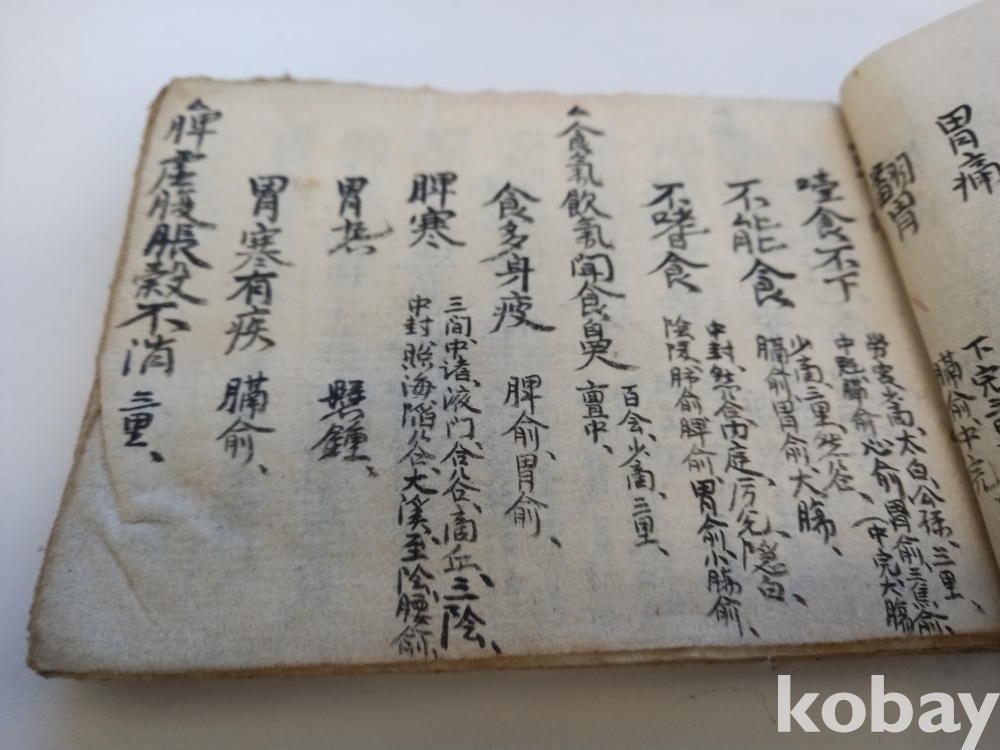 胃痛
下完三里
翻胃
膈俞、中完
噎食不下
勞宮、少商、太白、公孫、三里、
中魁、膈俞、心俞、胃俞、三焦俞、(中完、大腸
不能食
少商、三里、然谷、
膈俞、胃俞、大腸、
不嗜食
中封、然谷、內庭、厉兌、隱白、
陰陵、肺俞、脾俞、胃俞、小腸俞、
食氣飮氣聞食臭
百会、少商、三里、
亶中、
食多身疲
脾俞、胃俞、
脾寒
三间、中渚、液门、合谷、商丘、三陰、
中封、照海、陷谷、大溪、至陰、腰俞、
胃热
懸鍾、
胃寒有疾
膈俞、
脾虛腹脹穀不消
三里、
kobay